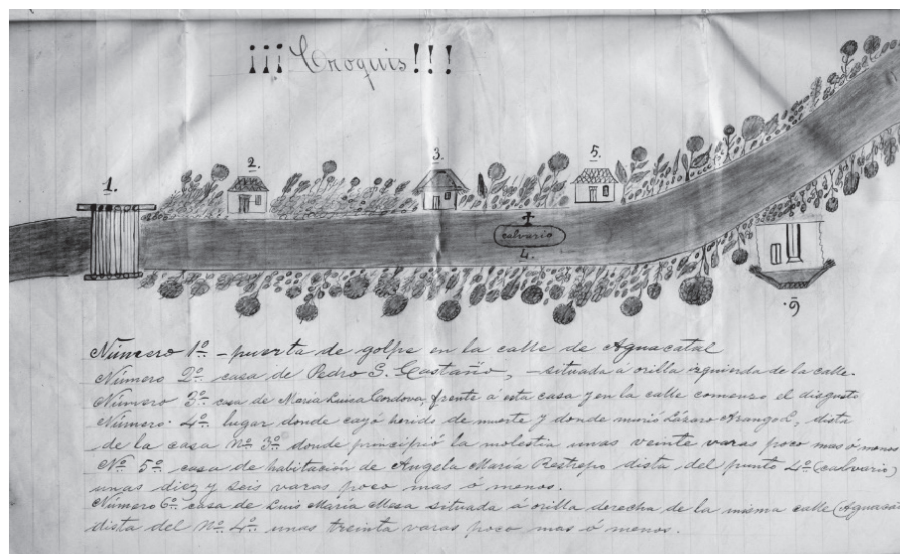 ¡¡¡Croquis!!!
1.
2.
3.
5.
calvario
4.
6.
Número 1º. - puerta de golpe en la calle de Aguacatal
Número 2º. casa de Pedro G. Castaño, - situada á orilla izquierda de la calle.
Número 3º. casa de María Luisa Cordova, frente á esta casa y en la calle comenzó el disgusto
Número. 4º. lugar donde cayó herido de muerte y donde murió Lázaro Arango, dista
de la casa Nº. 3º. donde principió la molestia unas veinte varas poco mas ó menos
Nº 5º. casa de habitación de Angela María Restrepo dista del punto 4º (calvario)
unas diez y seis varas poco mas ó menos.
Número 6º. casa de Luis María Mesa situada á orilla derecha de la misma calle
dista del Nº. 4º. unas treinta varas poco mas ó menos.